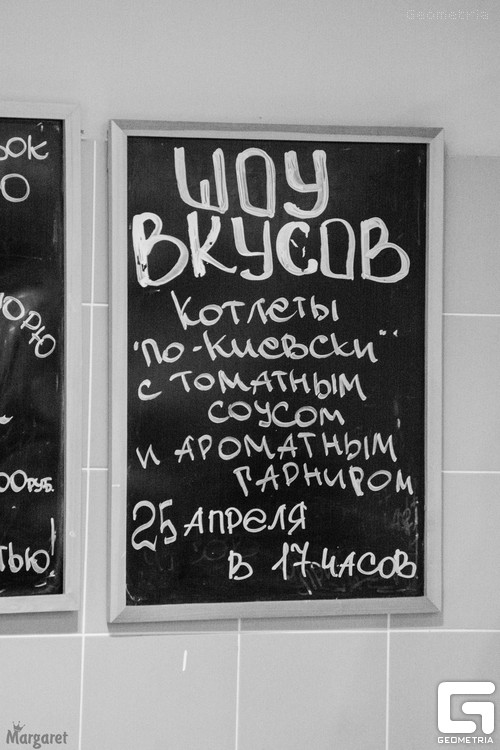 Geometria
ШОУ
ВКУСОВ
КОТЛЕТЫ
"ПО-КИЕВСКИ"
С ТОМАТНЫМ
СОУСОМ
И АРОМАТНЫМ
ГАРНИРОМ
25 АПРЕЛЯ
В 17 ЧАСОВ
ОК
О
ОРЮ
00РУБ.
ТЬЮ!
Margaret
GEOMETRIA